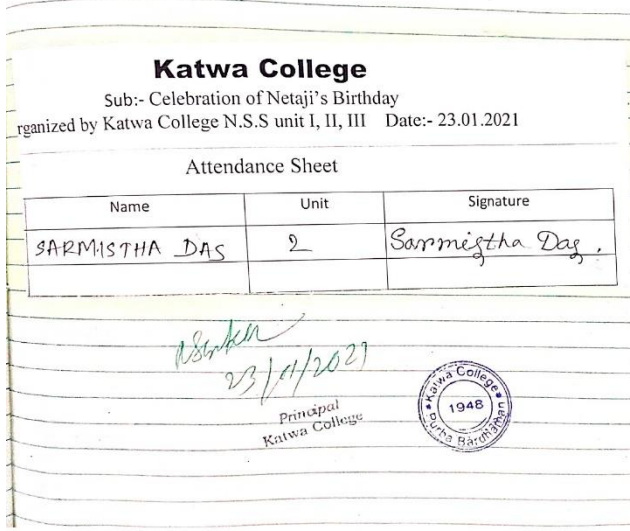 Katwa College
Sub:- Celebration of Netaji's Birthday
rganized by Katwa College N.S.S unit I, II, III Date:- 23.01.2021
Attendance Sheet
Name Unit Signature
SARMISTHA DAS 2 Sarmistha Das.
23/01/2021
Principal
Katwa College
Katwa College
1948
Purba Bardhaman